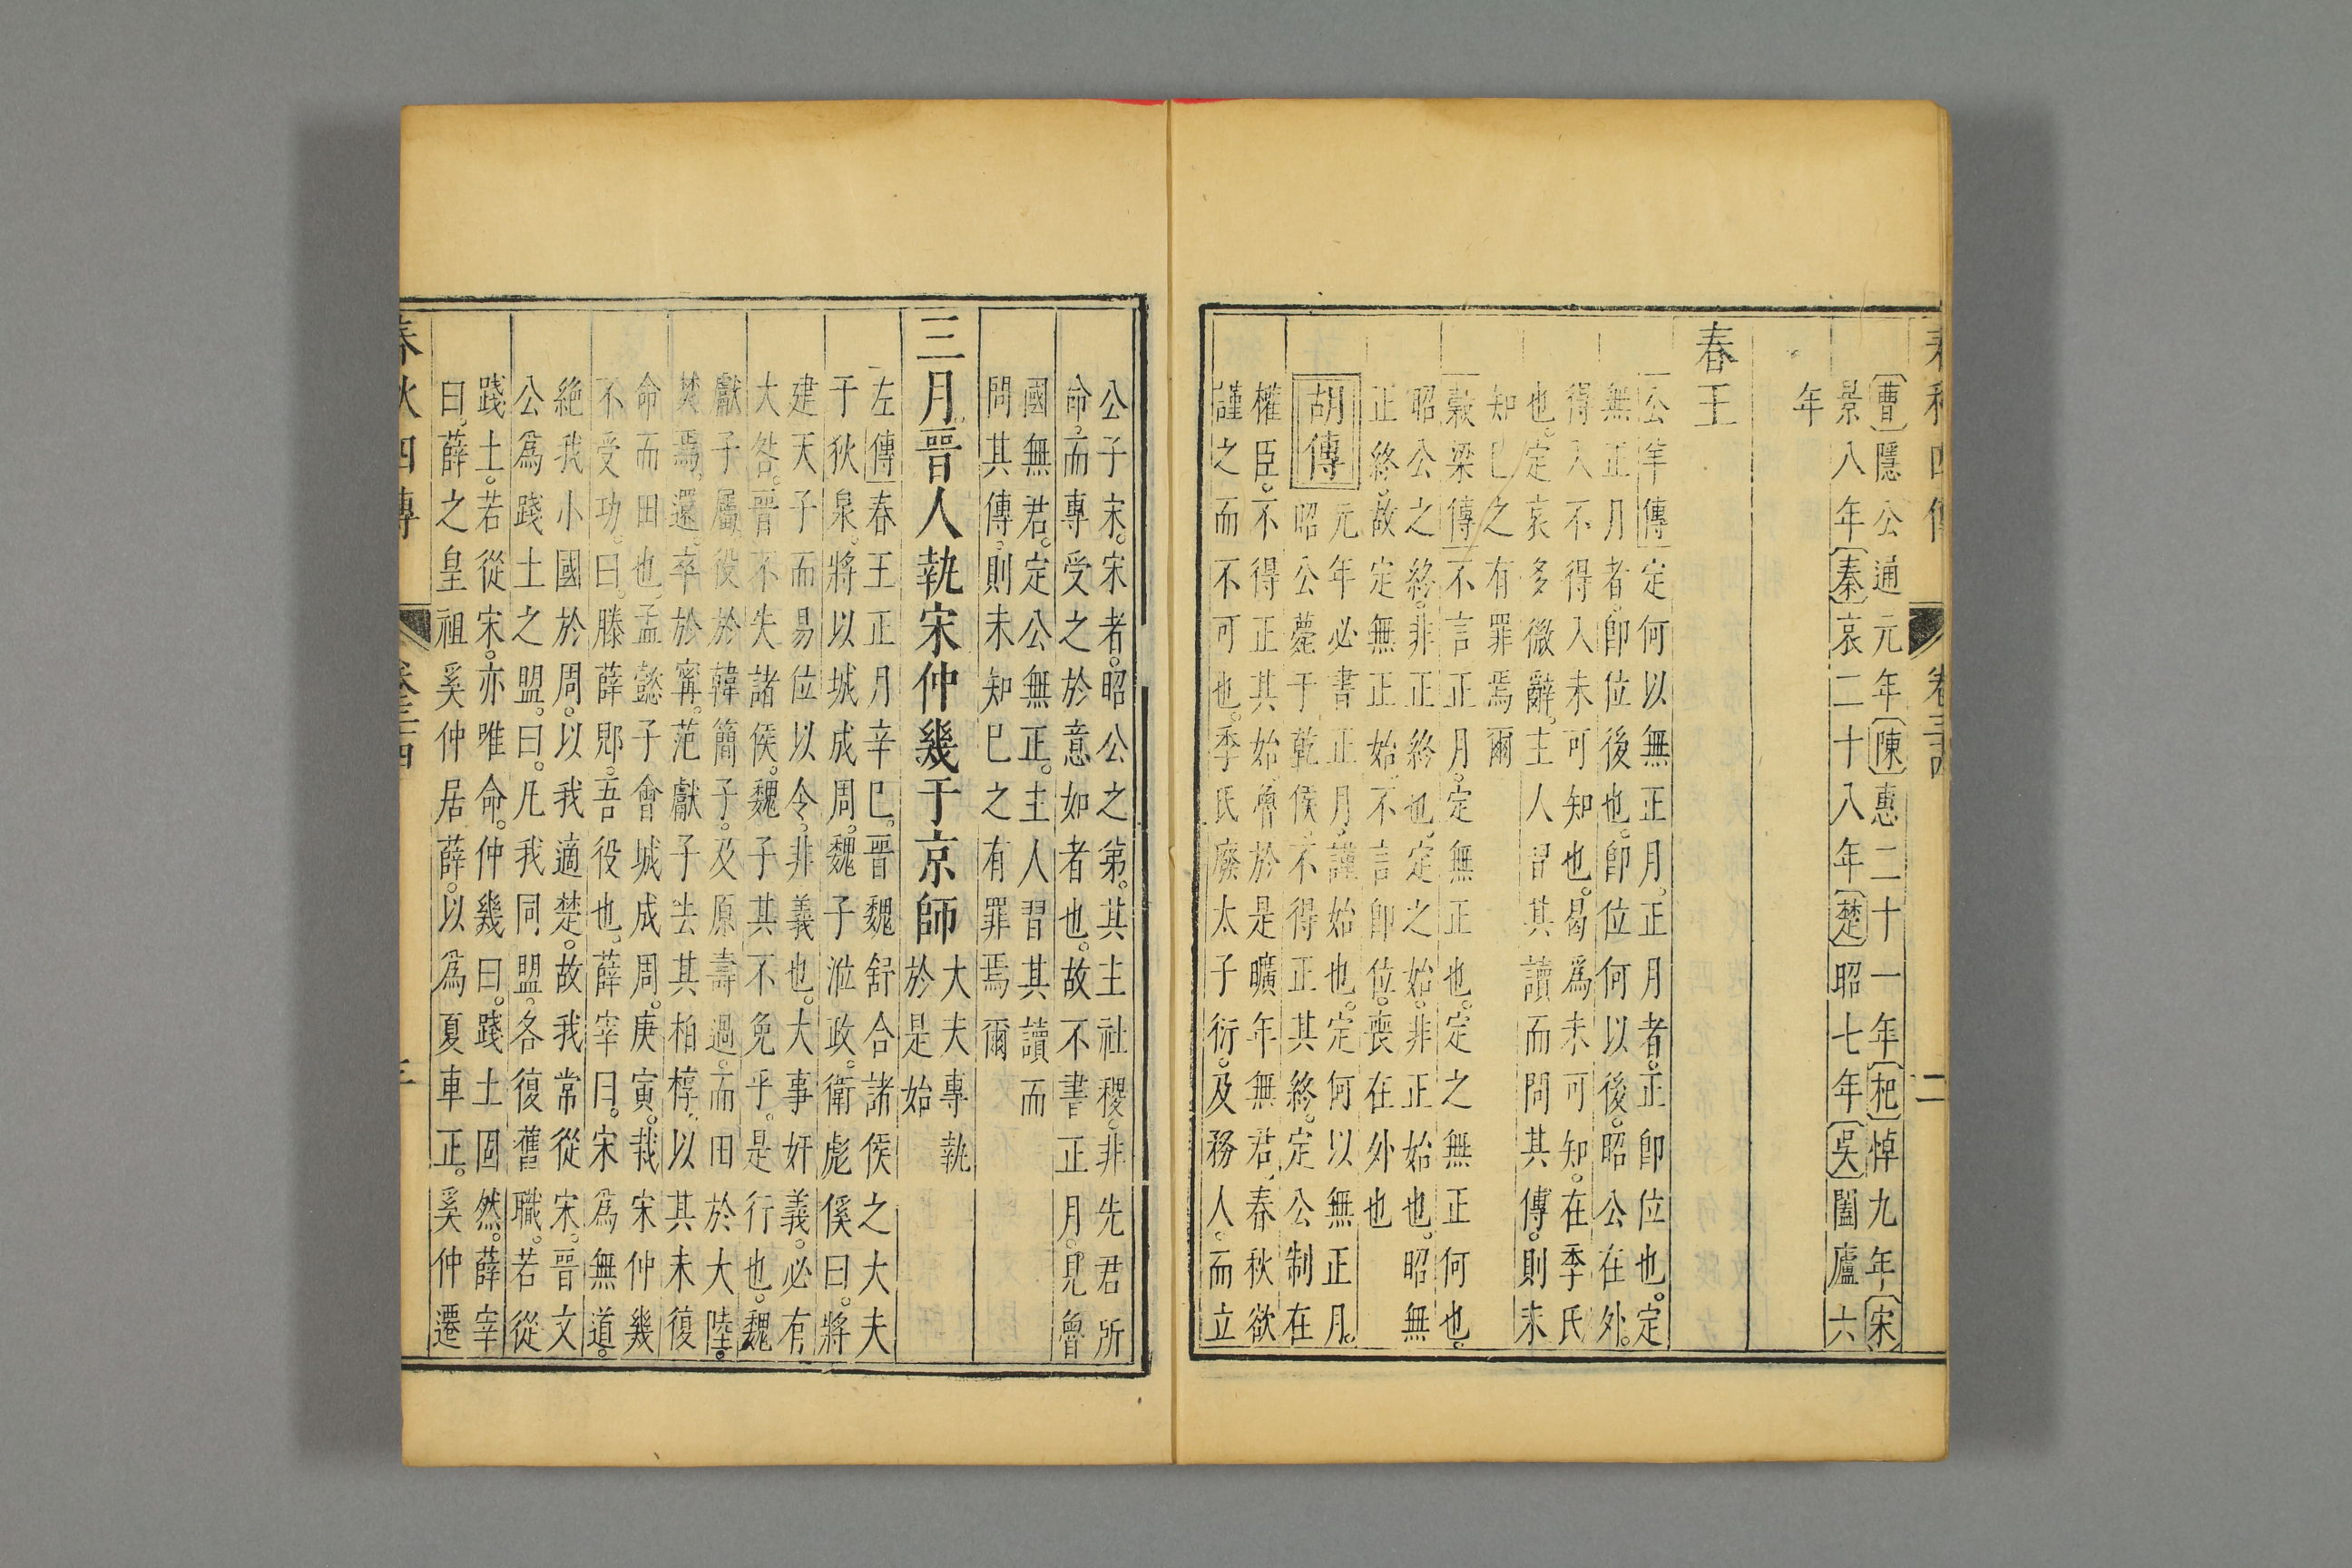 春秋四傳 卷三十四 二
曹隱公通元年陳惠二十一年杞悼九年宋
景八年秦哀二十八年楚昭七年吳闔廬六
年
春王
公羊傳定何以無正月正月者正即位也定
無正月者即位後也即位何以後昭公在外
得入不得入未可知也曷為未可知在季氏
也定哀多微辭主人習其讀而問其傳則未
知己之有罪焉爾
穀梁傳不言正月定無正也定之無正何也
昭公之終非正終也定之始非正始也昭無
正終故定無正始不言即位喪在外也
胡傳
元年必書正月謹始也定何以無正月
昭公薨于乾侯不得正其終定公制在
權臣不得正其始魯於是曠年無君春秋欲
謹之而不可也季氏廢太子衍及務人而立
公子宋宋者昭公之弟其主社稷非先君所
命而專受之於意如者也故不書正月見魯
國無君定公無正主人習其讀而
問其傳則未知已之有罪焉爾
三月晉人執宋仲幾于京師
大夫專執
於是始
左傳春王正月辛巳晉魏舒合諸侯之大夫
于狄泉將以城成周魏子涖政衛彪傒曰將
建天子而易位以令非義也大事奸義必有
大咎晉不失諸侯魏子其不免乎是行也魏
獻子屬役於韓簡子及原壽過而田於大陸
焚焉還卒於甯范獻子去其柏椁以其未復
命而田也孟懿子會城成周庚寅栽宋仲幾
不受功曰滕薛郳吾役也薛宰曰宋為無道
絶我小國於周以我適楚故我常從宋晉文
公爲踐土之盟曰凡我同盟各復舊職若從
踐土若從宋亦唯命仲幾曰踐土固然薛宰
曰薛之皇祖奚仲居薛以爲夏車正奚仲遷
春秋四傳 卷三十四 三